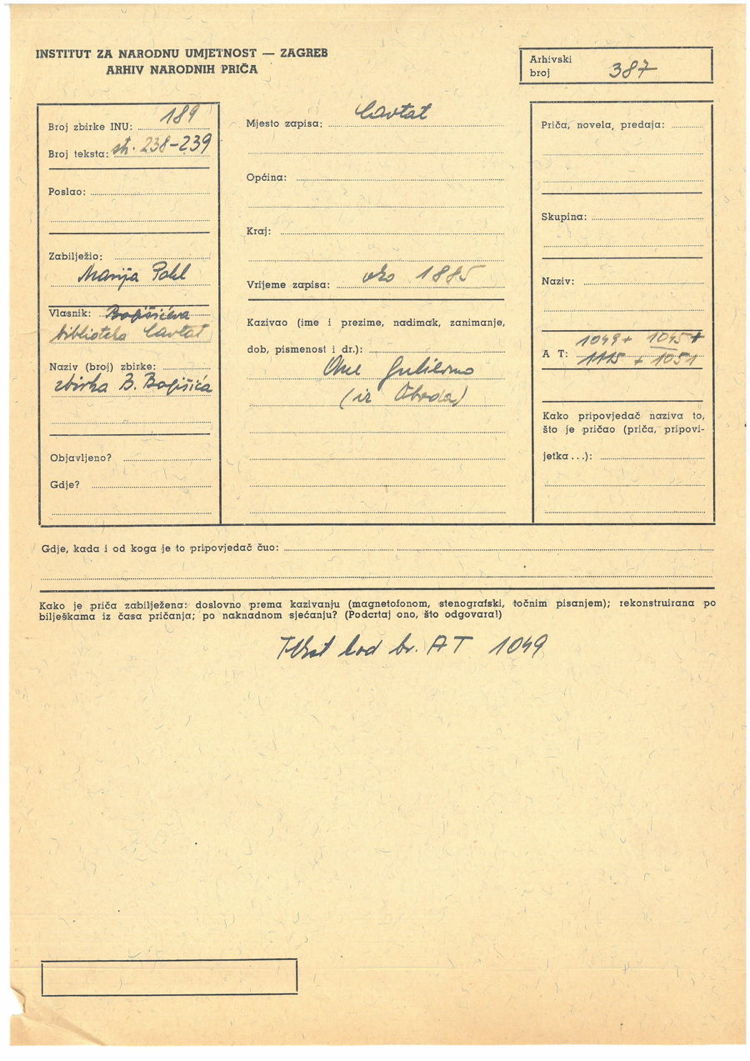 INSTITUT ZA NARODNU UMJETNOST — ZAGREB
ARHIV NARODNIH PRIČA
Arhivski broj 387
Broj zbirke INU: 189
Broj teksta: str. 238-239
Poslao:
Zabilježio:
Marija Pohl
Vlasnik: Bogišićeva
biblioteka Cavtat
Naziv (broj) zbirke:
zbirka B. Bogišića
Objavljeno?
Gdje?
Mjesto zapisa: Cavtat
Općina:
Kraj:
Vrijeme zapisa: oko 1885
Kazivao (ime i prezime, nadimak, zanimanje,
dob, pismenost i dr.):
(iz Oboda)
Priča, novela, predaja:
Skupina:
Naziv:
1049 + 1045 +
A T: 1115 + 1051
Kako pripovjedač naziva to,
što je pričao (priča, pripovi-
jetka...):
Gdje, kada i od koga je to pripovjedač čuo:
Kako je priča zabilježena: doslovno prema kazivanju (magnetofonom, stenografski, točnim pisanjem); rekonstruirana po
bilješkama iz časa pričanja; po naknadnom sjećanju? (Podcrtaj ono, što odgovara!)
Tekst kod br. AT 1049